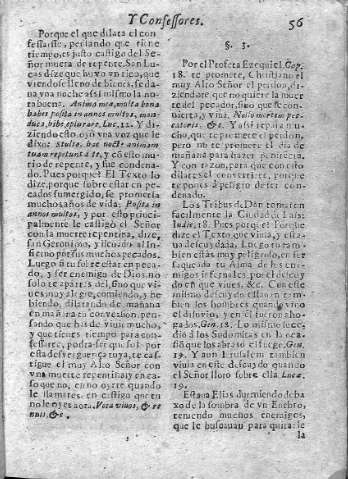 Y Confessores.
56
Porque el que dilata el con
fessarse, pensando que tiene
tiempo, es justo castigo del Se
ñor muera de repente. San Lu
cas dize que huvo vn rico, que
viendose lleno de bienes, se da-
na vna noche assi mismo la no
rabuena. Anima mea, multa bona
habes posita in annos multos,
duca, bibe, epulare, Luc. 12. Y di
ziendo esto, oyò vna voz que le
dixo: Stulte, hac nocte animam
tuam repetunt à te, y cõ esto mu
rio de repente, y fue condena-
do. Pues porque? El Texto lo
dize, porque sobre estar en pe-
cados sumergido, se prometia
muchos años de vida: Posita in
annos multos, y por esto princi-
palmente le castigò el Señor
con la muerte repentina, dize
San Geronimo, y fue al In-
fierno por sus muchos pecados.
Luego si tu sobre estar en peca-
do, y ser enemigo de Dios, no
solo te apartas del, sino que vi-
ues muy alegre, comiendo, y be
biendo, dilatando de mañana
en mañana tu conversion, pen-
sando que has de viuir mucho,
y que tienes tiempo para con-
fessarte, podrà ser que solo por
esta desverguença tuya, te cas-
tigue el muy Alto Señor con
vna muerte repentina, y en ca-
so que no, en no oyrte quando
le llamares, en castigo que tu
no le oyes aora.
§. 3.
Por el Profeta Ezequiel, Cap.
18. te promete, Christiano, el
muy Alto Señor el perdon, di-
ziendote, que no quiere la muer
te del pecador, sino que se con-
uierta, y viua. Nolo mortem pec-
catoris, &c. Y assi repara mu-
cho, que te promete el perdon,
pero no te promete el dia de
mañana para hazer penitencia.
Y con razon, para que con esto
dilates el convertirte, porque
te pones à peligro de ser con-
denado.
Los Tribus de Dan tomaron
facilmente la Ciudad de Lais:
Iudic. 18. Pues porque? Porque
dize el Texto, que viuia, y esta-
ua descuydada. Luego tu tam-
bien estàs muy peligroso, en ser
saqueada tu Alma de los ene-
migos infernales, por el descuy
do en que viues, &c. Con este
mismo descuydo estauan tam-
bien los hombres quando vino
el diluvio, y en èl fueron aho-
gados, Gen. 18. Lo mismo suce-
diò à los Sodomitas en la oca-
siõ que los abrasò el fuego, Gen.
19. Y aun Ierusalem tambien
viuia en este descuydo quando
el Señor llorò sobre ella Lucæ.
19.
Estaua Elias durmiendo deba-
xo de la sombra de vn Enebro,
teniendo muchos enemigos,
que le buscauan para quitarle
la